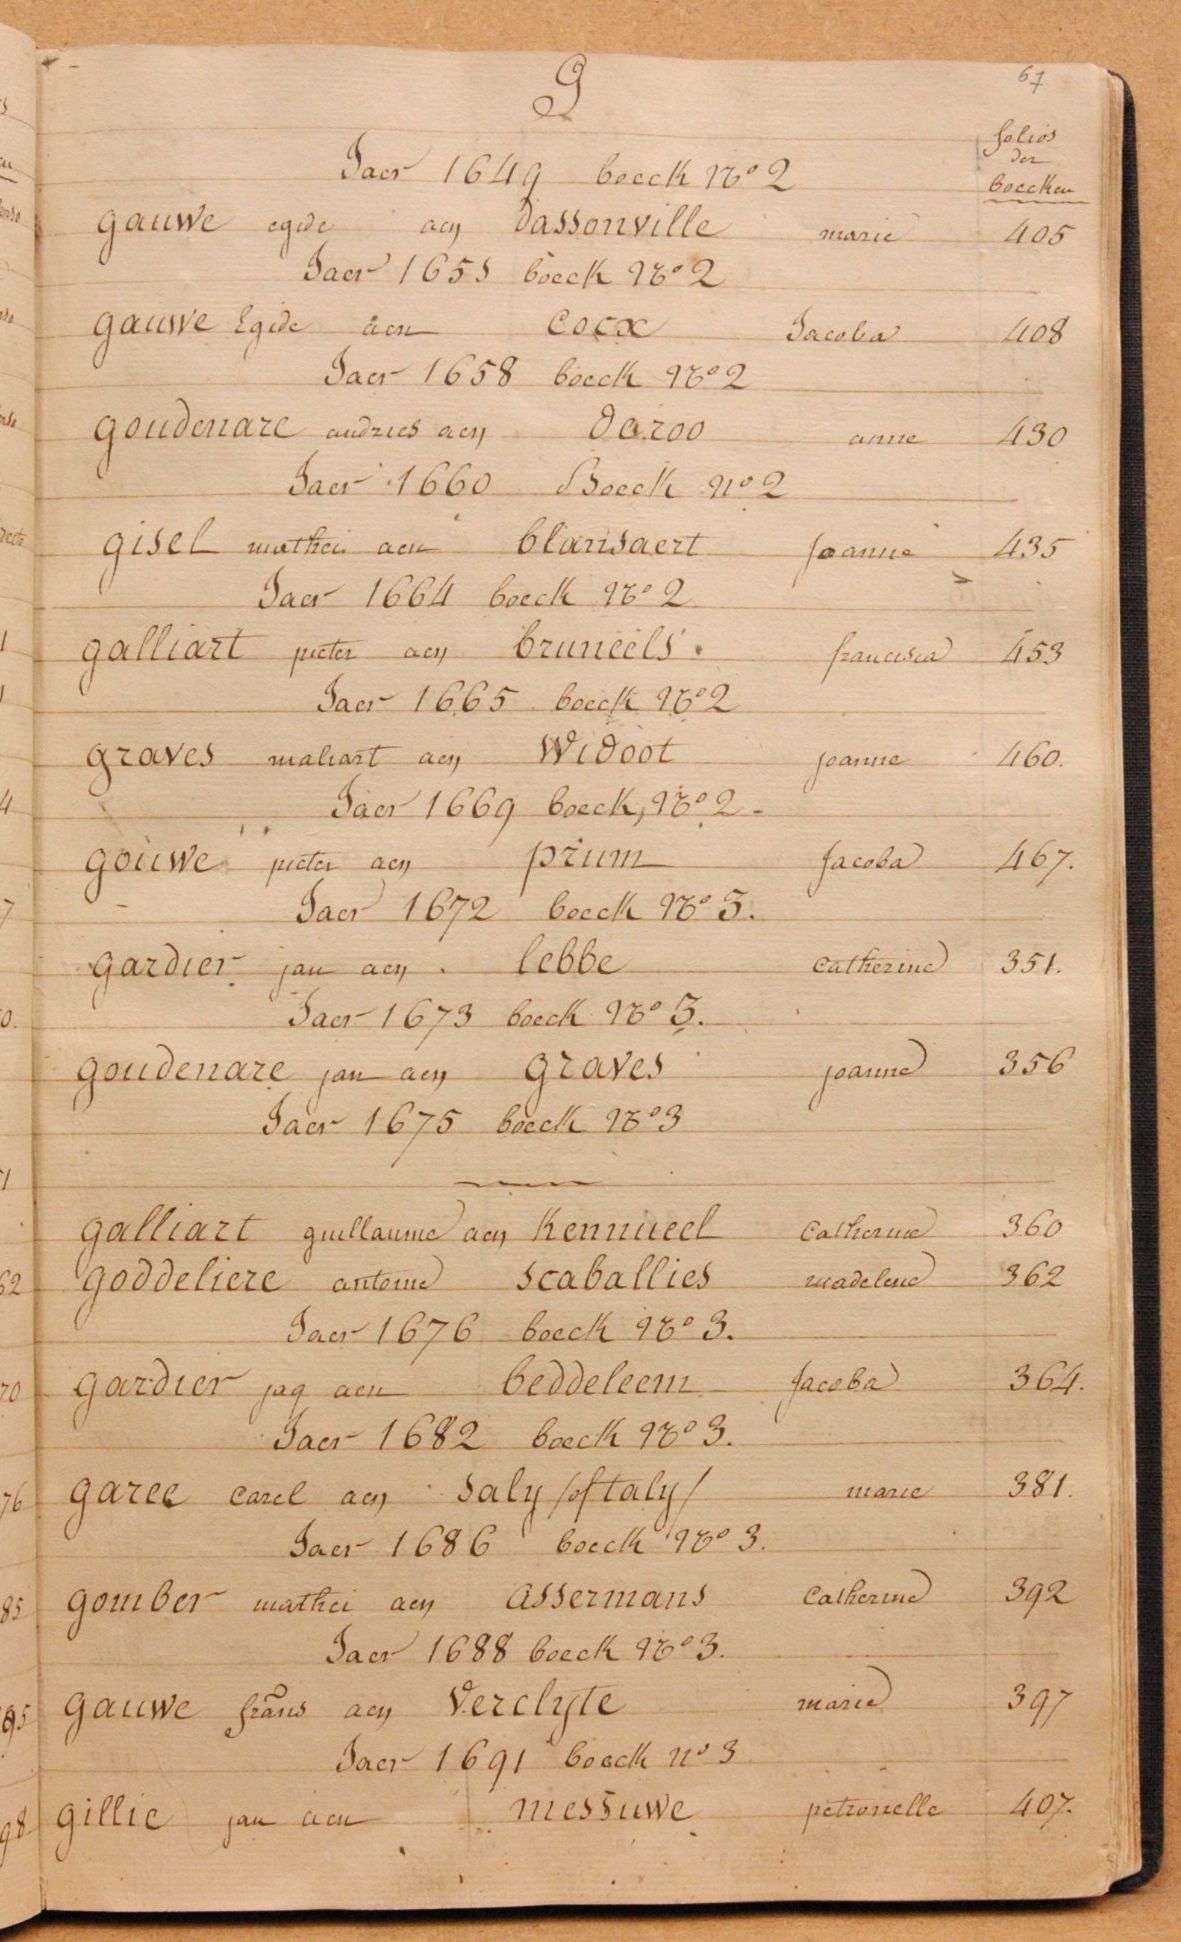 67
G
folios
der
boecken
Jaer 1649 boeck No 2
gauwe egide aen dassonville marie 405
Jaer 1655 boeck No 2
gauwe Egide aen cocx Jacoba 408
Jaer 1658 boeck No 2
goudenare andries aen deroo anne 430
Jaer 1660 Boeck no 2
gisel mathei aen blansaert Joanne 435
Jaer 1664 boeck No 2
galliart pieter aen bruneels francisca 453
Jaer 1665 boeck No 2
graves maliart aen Widoot joanne 460.
Jaer 1669 boeck, No 2
gouwe pieter aen prum Jacoba 467.
Jaer 1672 boeck No 3.
gardier jan aen lebbe catherine 351.
Jaer 1673 boeck No 3.
goudenare jan aen graves joanne 356
Jaer 1675 boeck No 3
galliart guillaume aen Kennueel catherine 360
goddeliere antoine scaballies madelene 362
Jaer 1676 boeck No 3.
gardier jaq aen beddeleem Jacoba 364.
Jaer 1682 boeck No 3.
garee carel aen saly /of taly/ marie 381.
Jaer 1686 boeck No 3.
gomber mathei aen assermans catherine 392
Jaer 1688 boeck No 3.
gauwe frans aen Verclyte marie 397
Jaer 1691 boeck no 3
gillie jan aen messuwe petronelle 407.